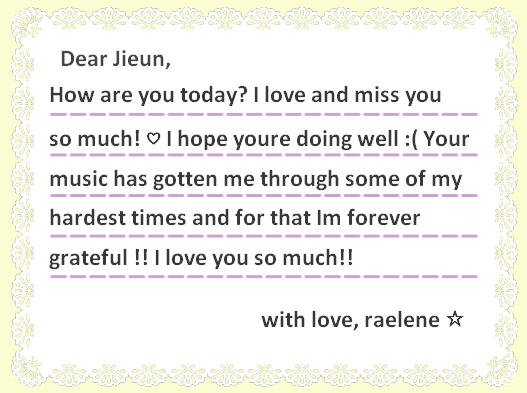 Dear Jieun,
How are you today? I love and miss you
so much! ♡ I hope youre doing well :( Your
music has gotten me through some of my
hardest times and for that Im forever
grateful !! I love you so much!!
with love, raelene ☆